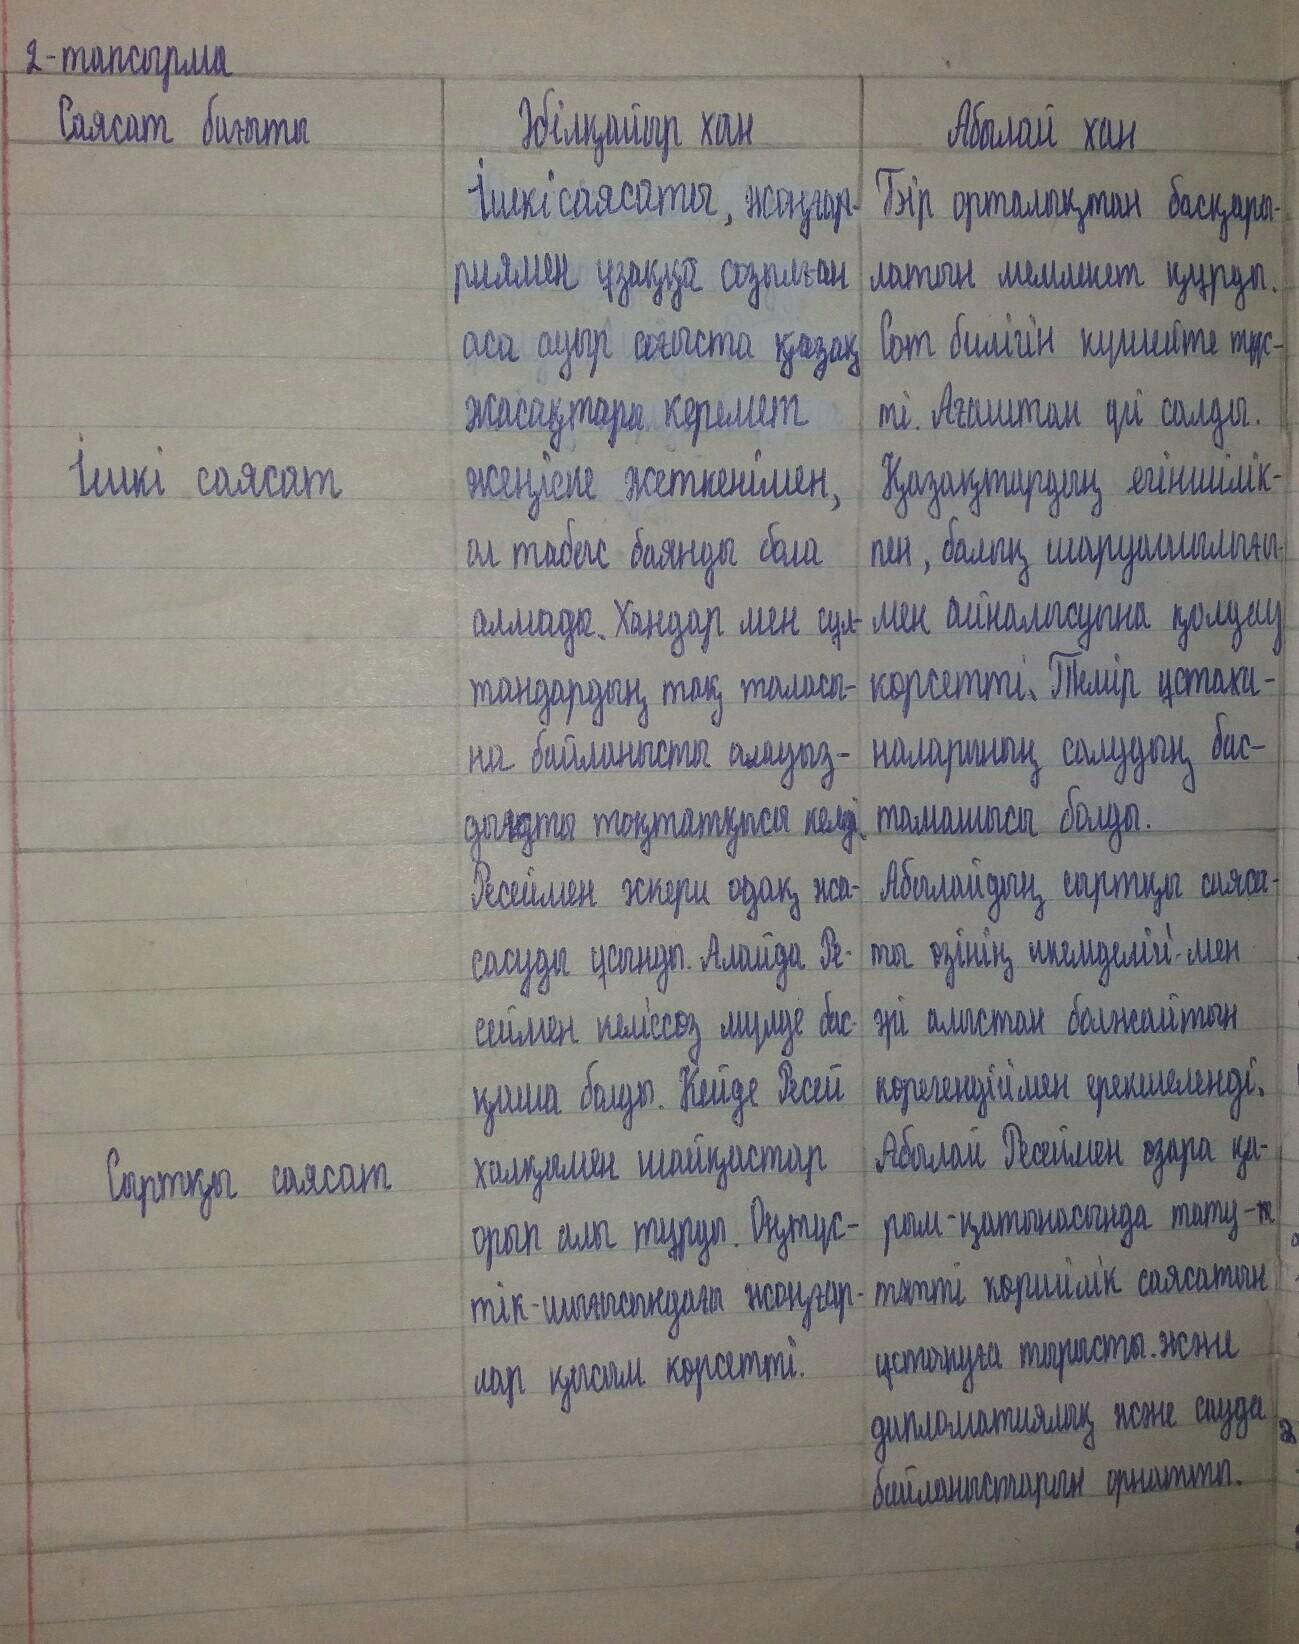 2-тапсырма
Саясат бағыты
Әбілқайыр хан
Абылай хан
Ішкі саясат
Ішкі саясаты, жоңғар-
риямен ұзаққа созылған
аса ауыр соғыста қазақ
жасақтары керемет
жеңіске жеткенімен,
ол табыс баянды бола
алмады. Хандар мен сұл-
тандардың тақ таласы-
на байланысты алауыз-
дықты тоқтатқысы келді.
Бір орталықтан басқары-
латын мемлекет құрды.
Сот билігін күшейте түс-
ті. Ағаштан үй салды.
Қазақтардың егіншілік-
пен, балық шаруашылығы-
мен айналысуына қолдау
көрсетті. Темір ұстаха-
наларының салудың бас-
тамашысы болды.
Сыртқы саясат
Ресеймен әскери одақ жа-
сасуды ұсынды. Алайда Ре-
сеймен келіссөз мүлде бас-
қаша болды. Кейде Ресей
халқымен шайқастар
орын алы тұрды. Оңтүс-
тік-шығысындағы жоңғар-
лар қысым көрсетті.
Абылайдың сыртқы саяса-
ты өзінің икемделігі-мен
әрі алыстан болжайтын
көрегендіймен ерекшеленді.
Абылай Ресеймен өзара қа-
рым-қатынасында тату-т
тәтті көршілік саясатын
ұстануға тырысты. және
дипломатиялық және сауда
байланыстарын орнатты.